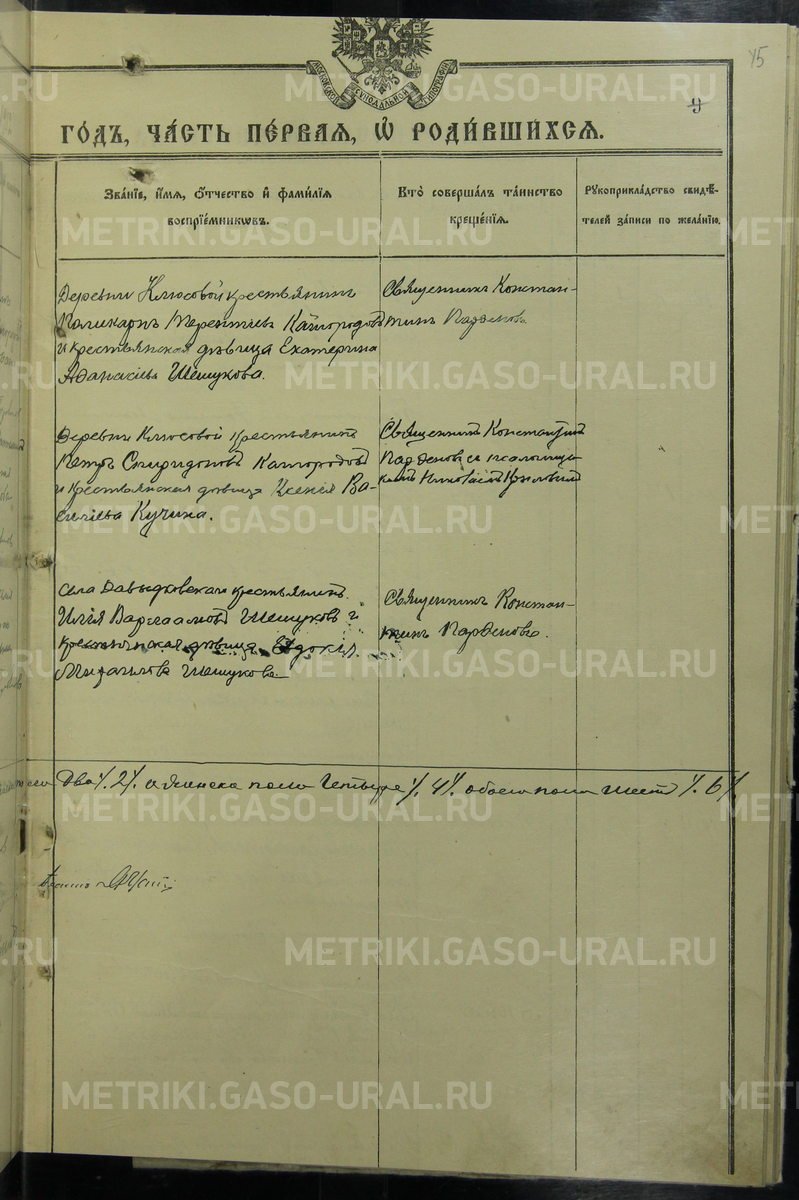 МОСКОВСКОЙ СѴНОДАЛЬНОЙ ТИПОГРАФІИ
15
9
ГО́ДЪ, ЧА́СТЬ ПЕ́РВАЯ, Ѡ҆ РОДИ́ВШИХСЯ.
Зва́нїе, и҆́мя, ѻ҆́тчество и҆ фами́лїя
воспрїе́мникѡвъ.
Кто̀ соверша́лъ та́инство
креще́нїя.
Рꙋкоприкла́дство свидѣ́-
телей за́писи по жела́нїю.
Деревни Клюсовой крестьянинъ
Поликарпъ Терентьевъ Кайгородовъ
и крестьянская дѣвица Екатерина
Аѳанасіева Шешукова.
Священникъ Констан-
тинъ Парѳеновъ
Деревни Клюсовой крестьянинъ
Петръ Спиридоновъ Кайгородовъ
и крестьянская дѣвица Ксенія Ва-
силіева Кучина.
Священникъ Константинъ
Парѳеновъ и псаломщи-
къ Николай
Села Давыдовскаго крестьянинъ
Илія Варлаамовъ Шешуковъ и
крестьянская дѣвица Евдокія
Михаилова Шешукова.
Священникъ Констан-
тинъ Парѳеновъ.
Два /.2/. а женска пола четыре /.4/. обоего пола шесть /.6/.
METRIKI.GASO-URAL.RU